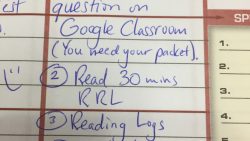 est question on
Google Classroom
(You need your packet).
② Read 30 mins
RRL
③ Reading Logs
SP
1.
2.
3.
4.
5.